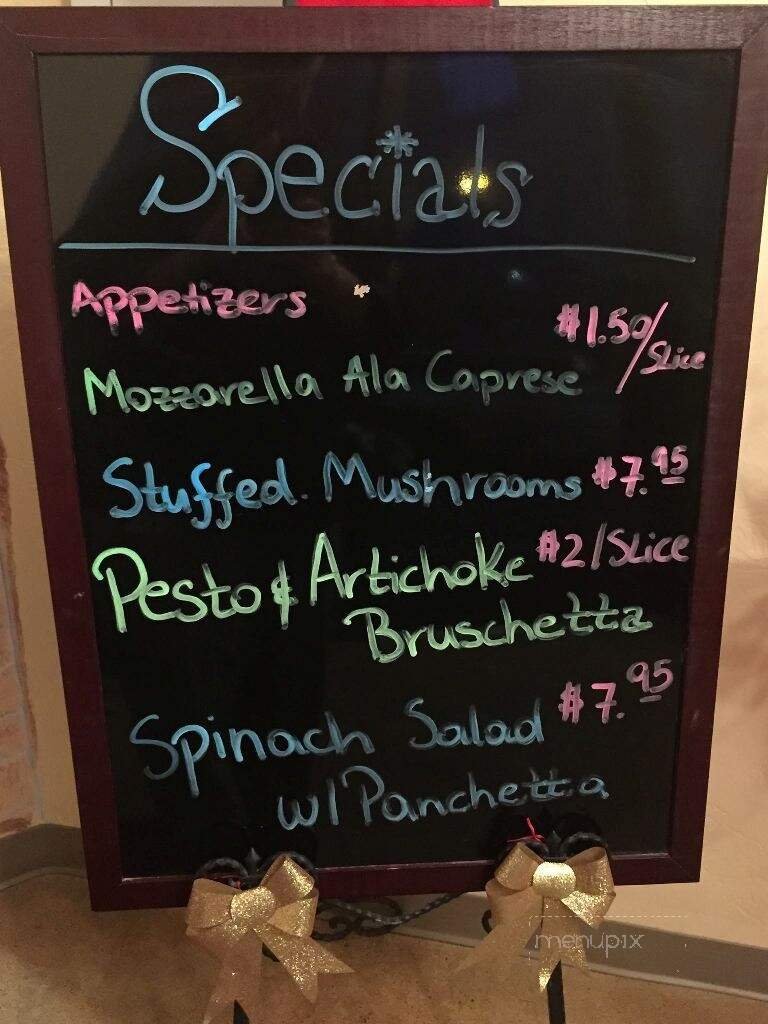 Specials
Appetizers
$1.50/Slice
Mozzarella Ala Caprese
Stuffed. Mushrooms $7.95
Pesto & Artichoke $2/Slice
Bruschetta
Spinach Salad $7.95
w/Panchetta
menupix